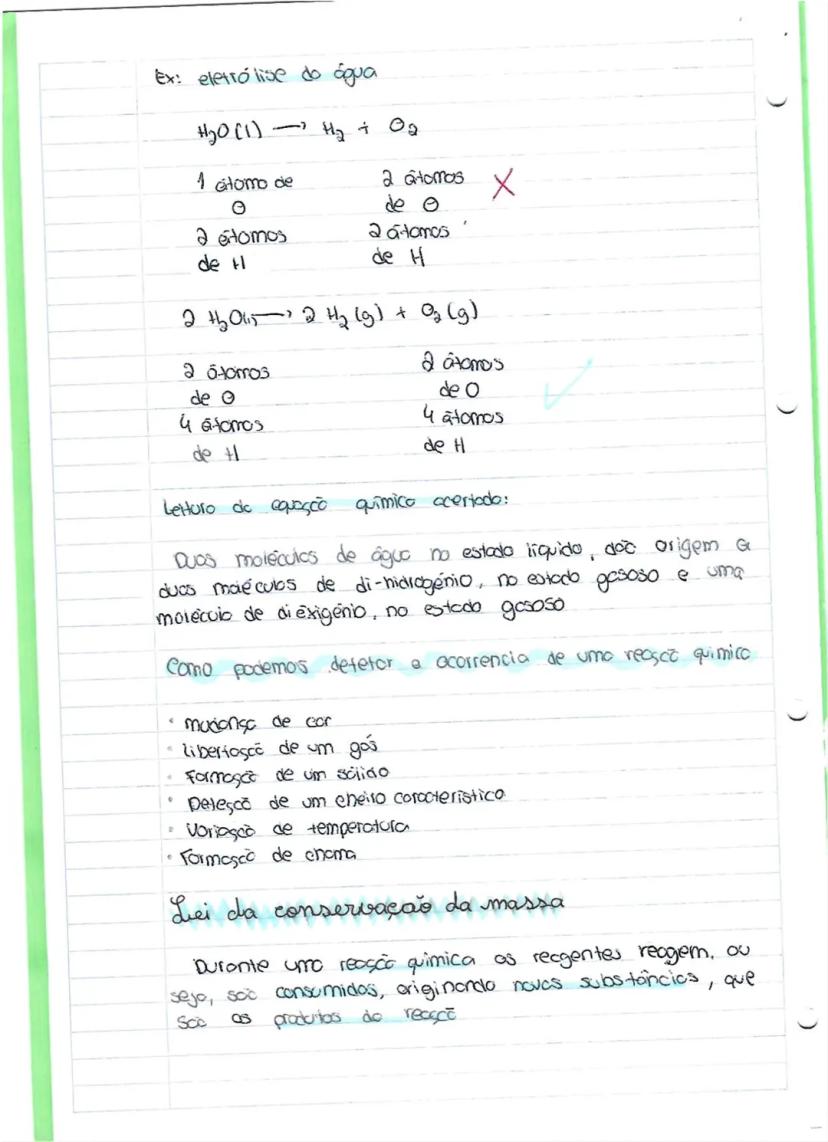 Ex: eletrólise da água
H₂O(l) → H₂ + O₂
1 átomo de 2 átomos X
O de O
2 átomos 2 átomos
de H de H
2 H₂O(l) → 2 H₂(g) + O₂(g)
2 átomos 2 átomos
de O de O ✓
4 átomos 4 átomos
de H de H
Leitura da equação química acertada:
Duas moléculas de água no estado líquido, dão origem a
duas moléculas de di-hidrogénio, no estado gasoso e uma
molécula de dioxigénio, no estado gasoso
Como podemos detetar a ocorrencia de uma reação química
• Mudança de cor
• Libertação de um gás
• Formação de um sólido
• Deteção de um cheiro característico
• Variação de temperatura
• Formação de chama
Lei da conservação da massa
Durante uma reação química os reagentes reagem, ou
seja, são consumidos, originando novas substâncias, que
são os produtos da reação